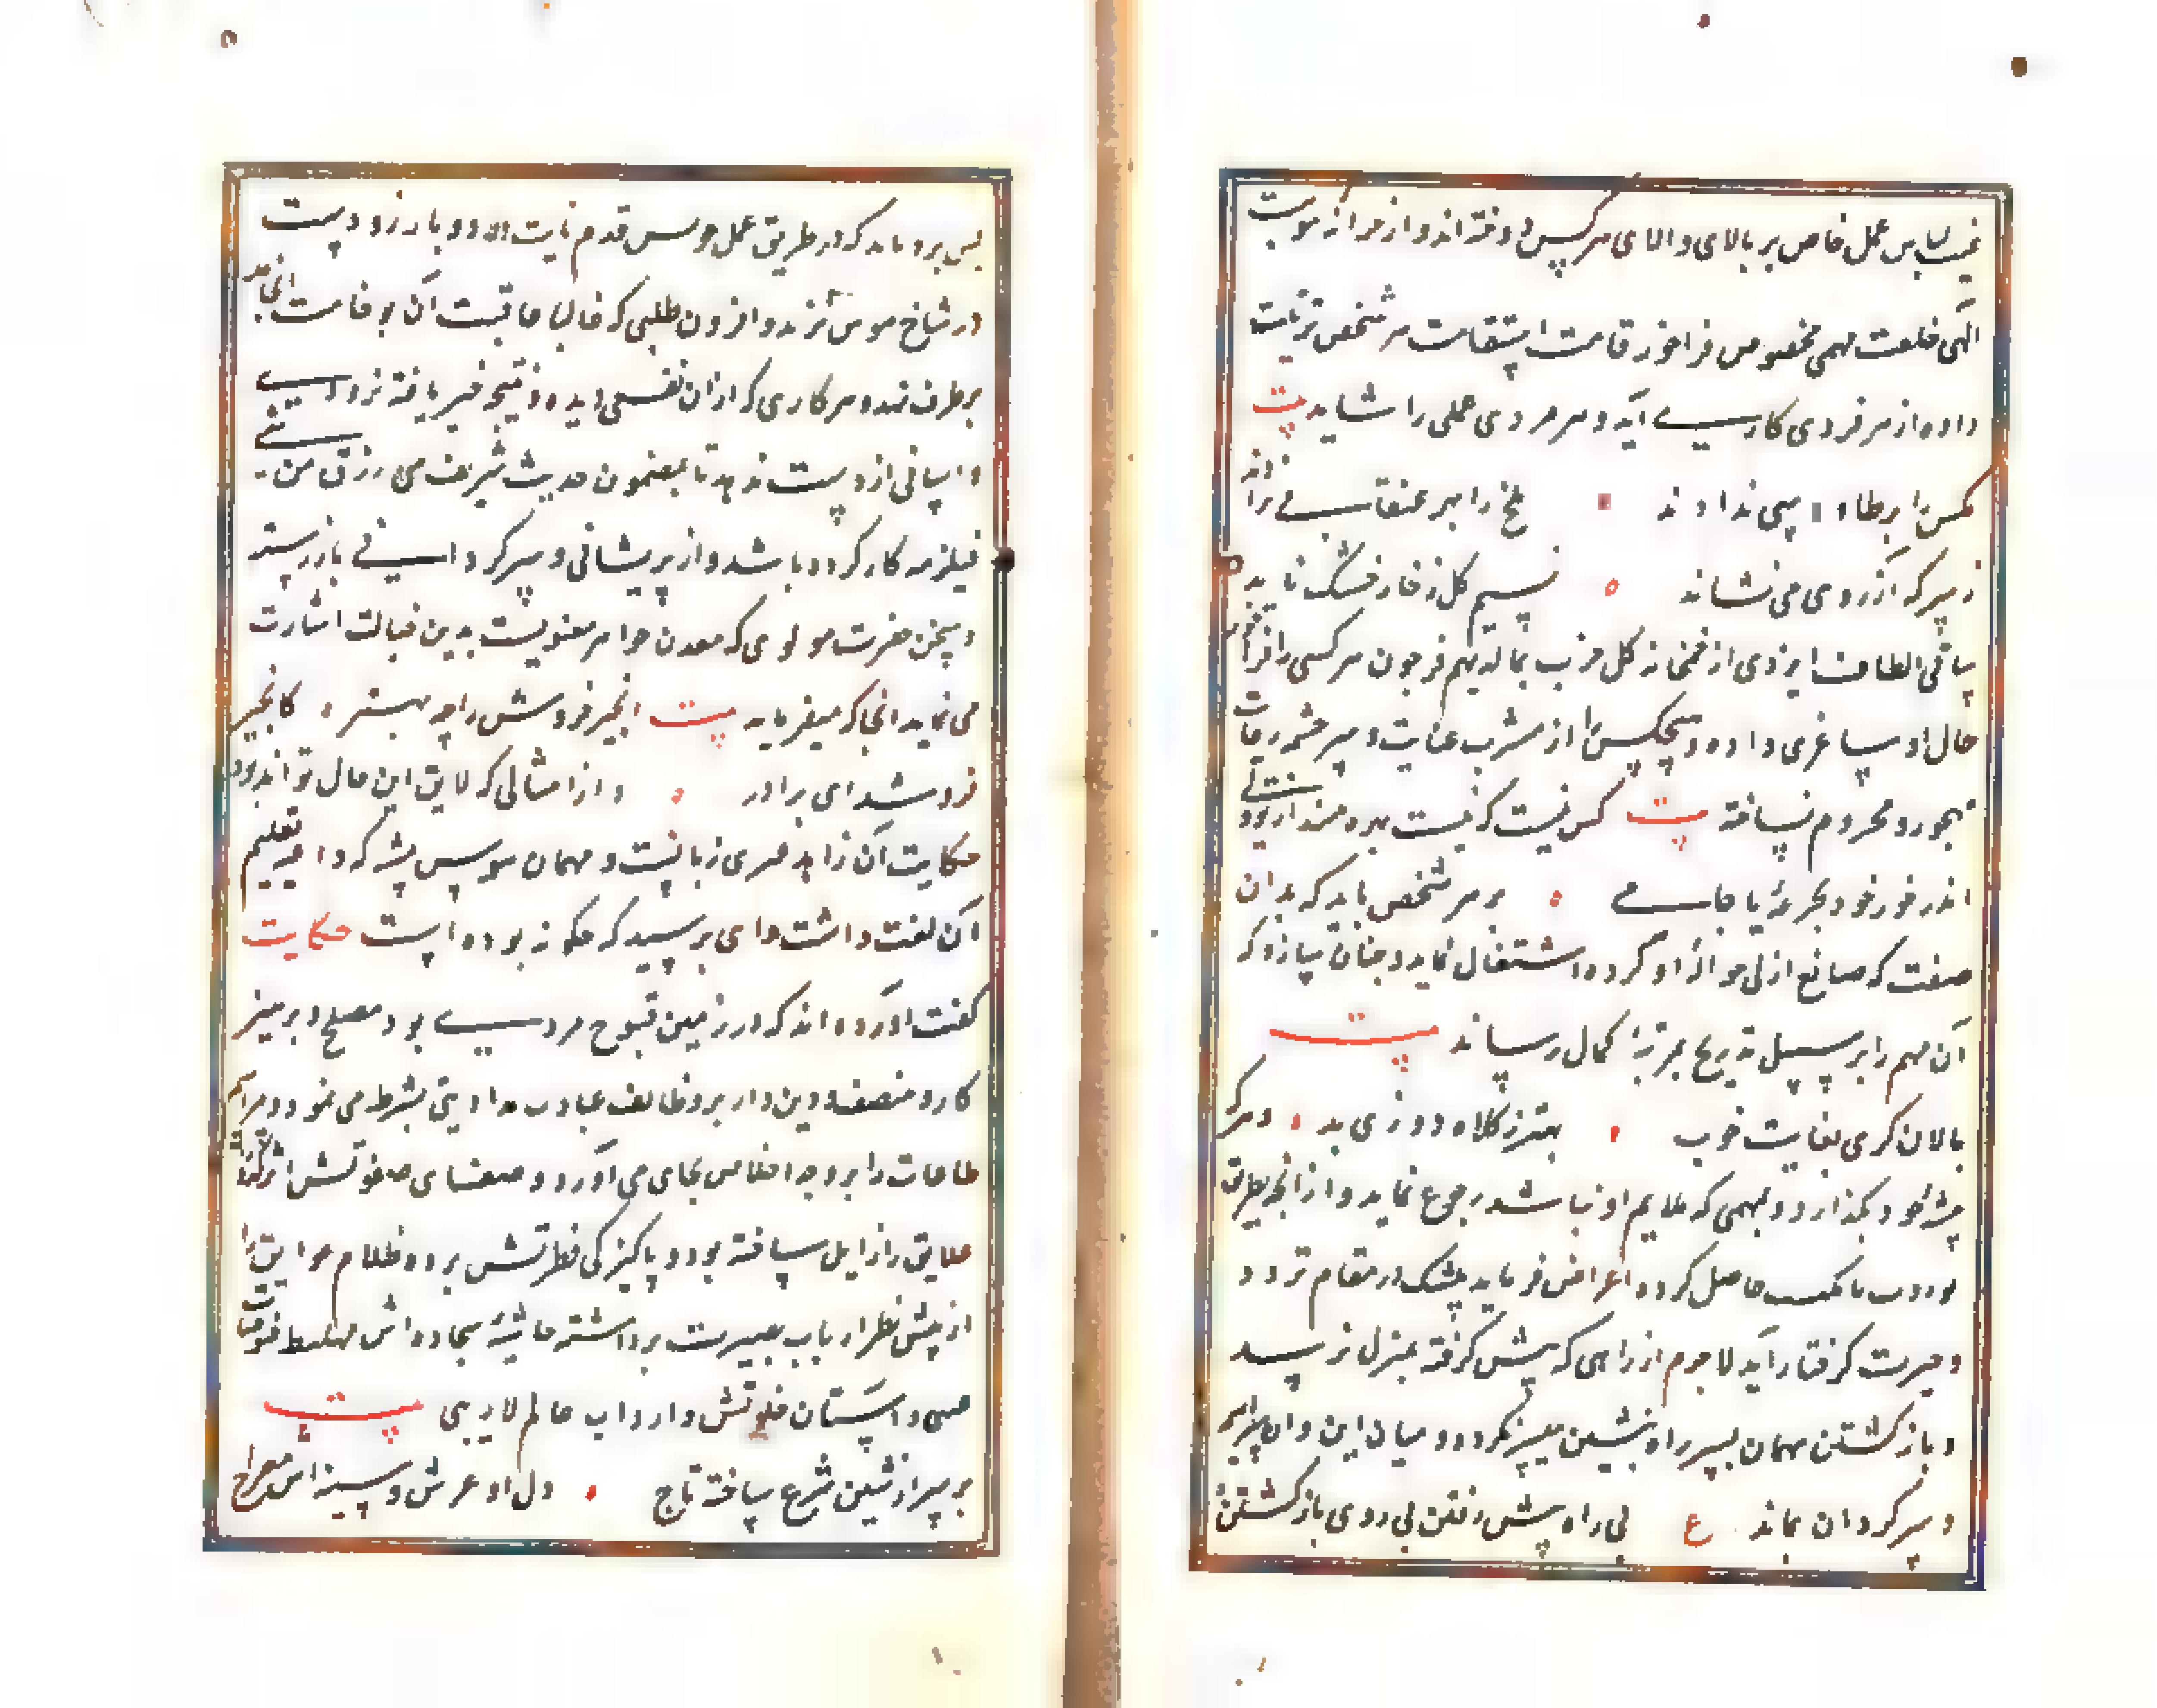 غیب لباس عمل خاص بر بالای والای هر کس دوخته اند و از خزانه موهبت
الهی خلعت مهمی مخصوص فراخور قامت استقامت هر شخص ترتیب
داده از هر فردی کاری آید و هر مردی عملی را شاید بیت
مکس را پر طاوسی ندادند ملخ را پر عنقایی نزادند
ز سرکه آرزوی می نشاید نسیم گل ز خار خشک ناید
ساقی الطاف ایزدی از خمخانه کل حزب بما لدیهم فرحون هر کسی را فراخور
حال او ساغری داده و هیچکس را از مشرب عنایت و سرچشمه رعایت
مهجور و محروم نساخته بیت کس نیست که نیست بهره مند از تو ولی
اندر خور خود بجرعه یا جامی و هر شخص باید که بدان
صنعت که صانع ازلی حواله او کرده اشتغال نماید و چنان سازد که
آن مهم را بر سبیل تدریج بمرتبه کمال رساند بیت
پالان گری بغایت خود بهتر ز کلاه دوزی بد و هر که
پیشه خود بگذارد و بمهمی که ملایم او نباشد رجوع نماید و از آنچه بطریق
حاصل کرده اعراض فرماید بیشک در مقام تردد
و حیرت گرفتار آید لاجرم از راهی که پیش گرفته بمنزل نرسد
و بازگشتن همان بسر راه پیشین میسر نگردد و میان این و آن
و سرگردان بماند ع نی راه پیش رفتن نی روی بازگشتن
پس مرد باید که در طریق عمل خویش قدم ثابت و بارزو دست
در شاخ هوس نزند و افزون طلبی که غالبا عاقبت آن بوخامت انجامد
برطرف نهد و هر کاری که از آن نفعی دیده و نتیجه خیر یافته بزودی
و آسانی از دست ندهد تا بمضمون حدیث شریف من رزق من شیء
فیلزمه کار کرده باشد و از پریشانی و سرگردانی باز رسته
و سخن حضرت مولوی که معدن جواهر معنویست بدین حالت اشارت
می نماید انجا که میفرماید بیت انجیر فروش را چه بهتر کانجیر
فروشد ای برادر و از امثالی که لایق این حال تواند بود
حکایت آن زاهد عبری زبانست و مهمان هوس پیشه که داعیه تعلیم
آن لغت داشت رای پرسید که چگونه بوده است حکایت
گفت آورده اند که در زمین قنوج مردی بود مصلح و پرهیز
کار و متصف و دین دار بر وظایف عبادت مداومتی بشرط می نمود و مراسم
طاعات را بر وجه اخلاص بجای می آورد و صفای صفوتش
علایق را زایل ساخته بود و پاکیزگی فطرتش پرده ظلام عوایق را
از پیش نظر ارباب بصیرت برداشته حاشیه سجاده اش مهبط فیوضات
و آستان خلوتش وارد عالم لاریبی بیت
بر سر از شین شرع ساخته تاج دل او عرش و سینه اش معراج